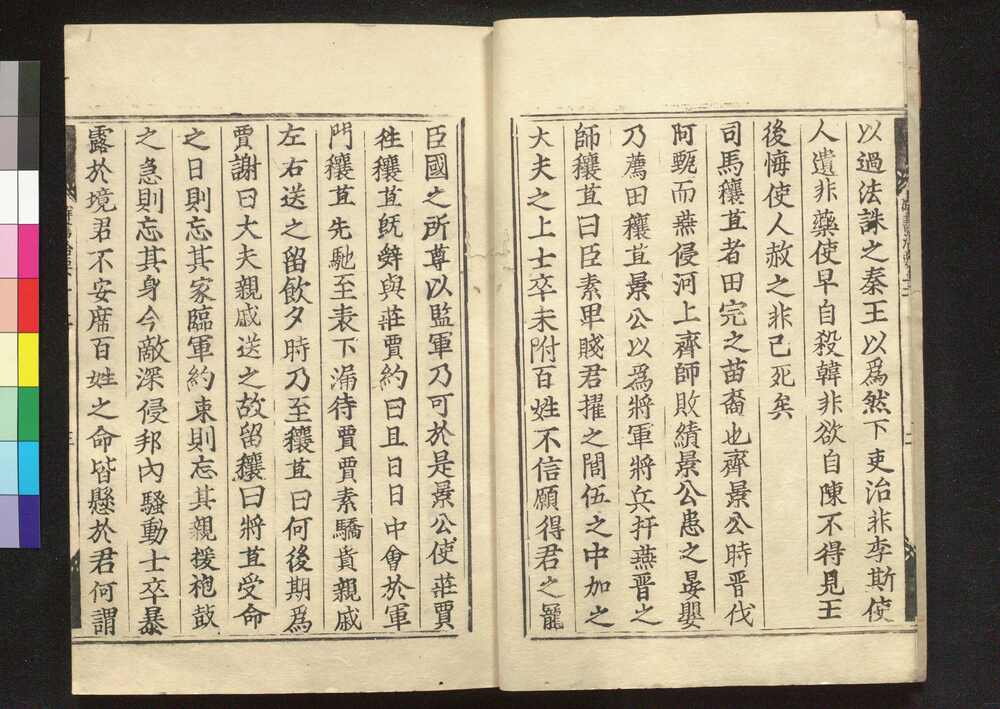 以過法誅之秦王以爲然下吏治非李斯使
人遺非藥使早自殺韓非欲自陳不得見王
後悔使人赦之非已死矣
司馬穰苴者田完之苗裔也齊景公時晋伐
阿甄而燕侵河上齊師敗績景公患之晏嬰
乃薦田穰苴景公以爲將軍將兵扞燕晋之
師穰苴曰臣素卑賤君擢之閭伍之中加之
大夫之上士卒未附百姓不信願得君之寵
臣國之所尊以監軍乃可於是景公使莊賈
徃穰苴既辤與莊賈約曰且日日中會於軍
門穰苴先馳至表下漏待賈賈素驕貴親戚
左右送之留飲夕時乃至穰苴曰何後期爲
賈謝曰大夫親戚送之故留穰曰將苴受命
之日則忘其家臨軍約束則忘其親援袍皷
之急則忘其身今敵深侵邦內騷動士卒暴
露於境君不安席百姓之命皆懸於君何謂